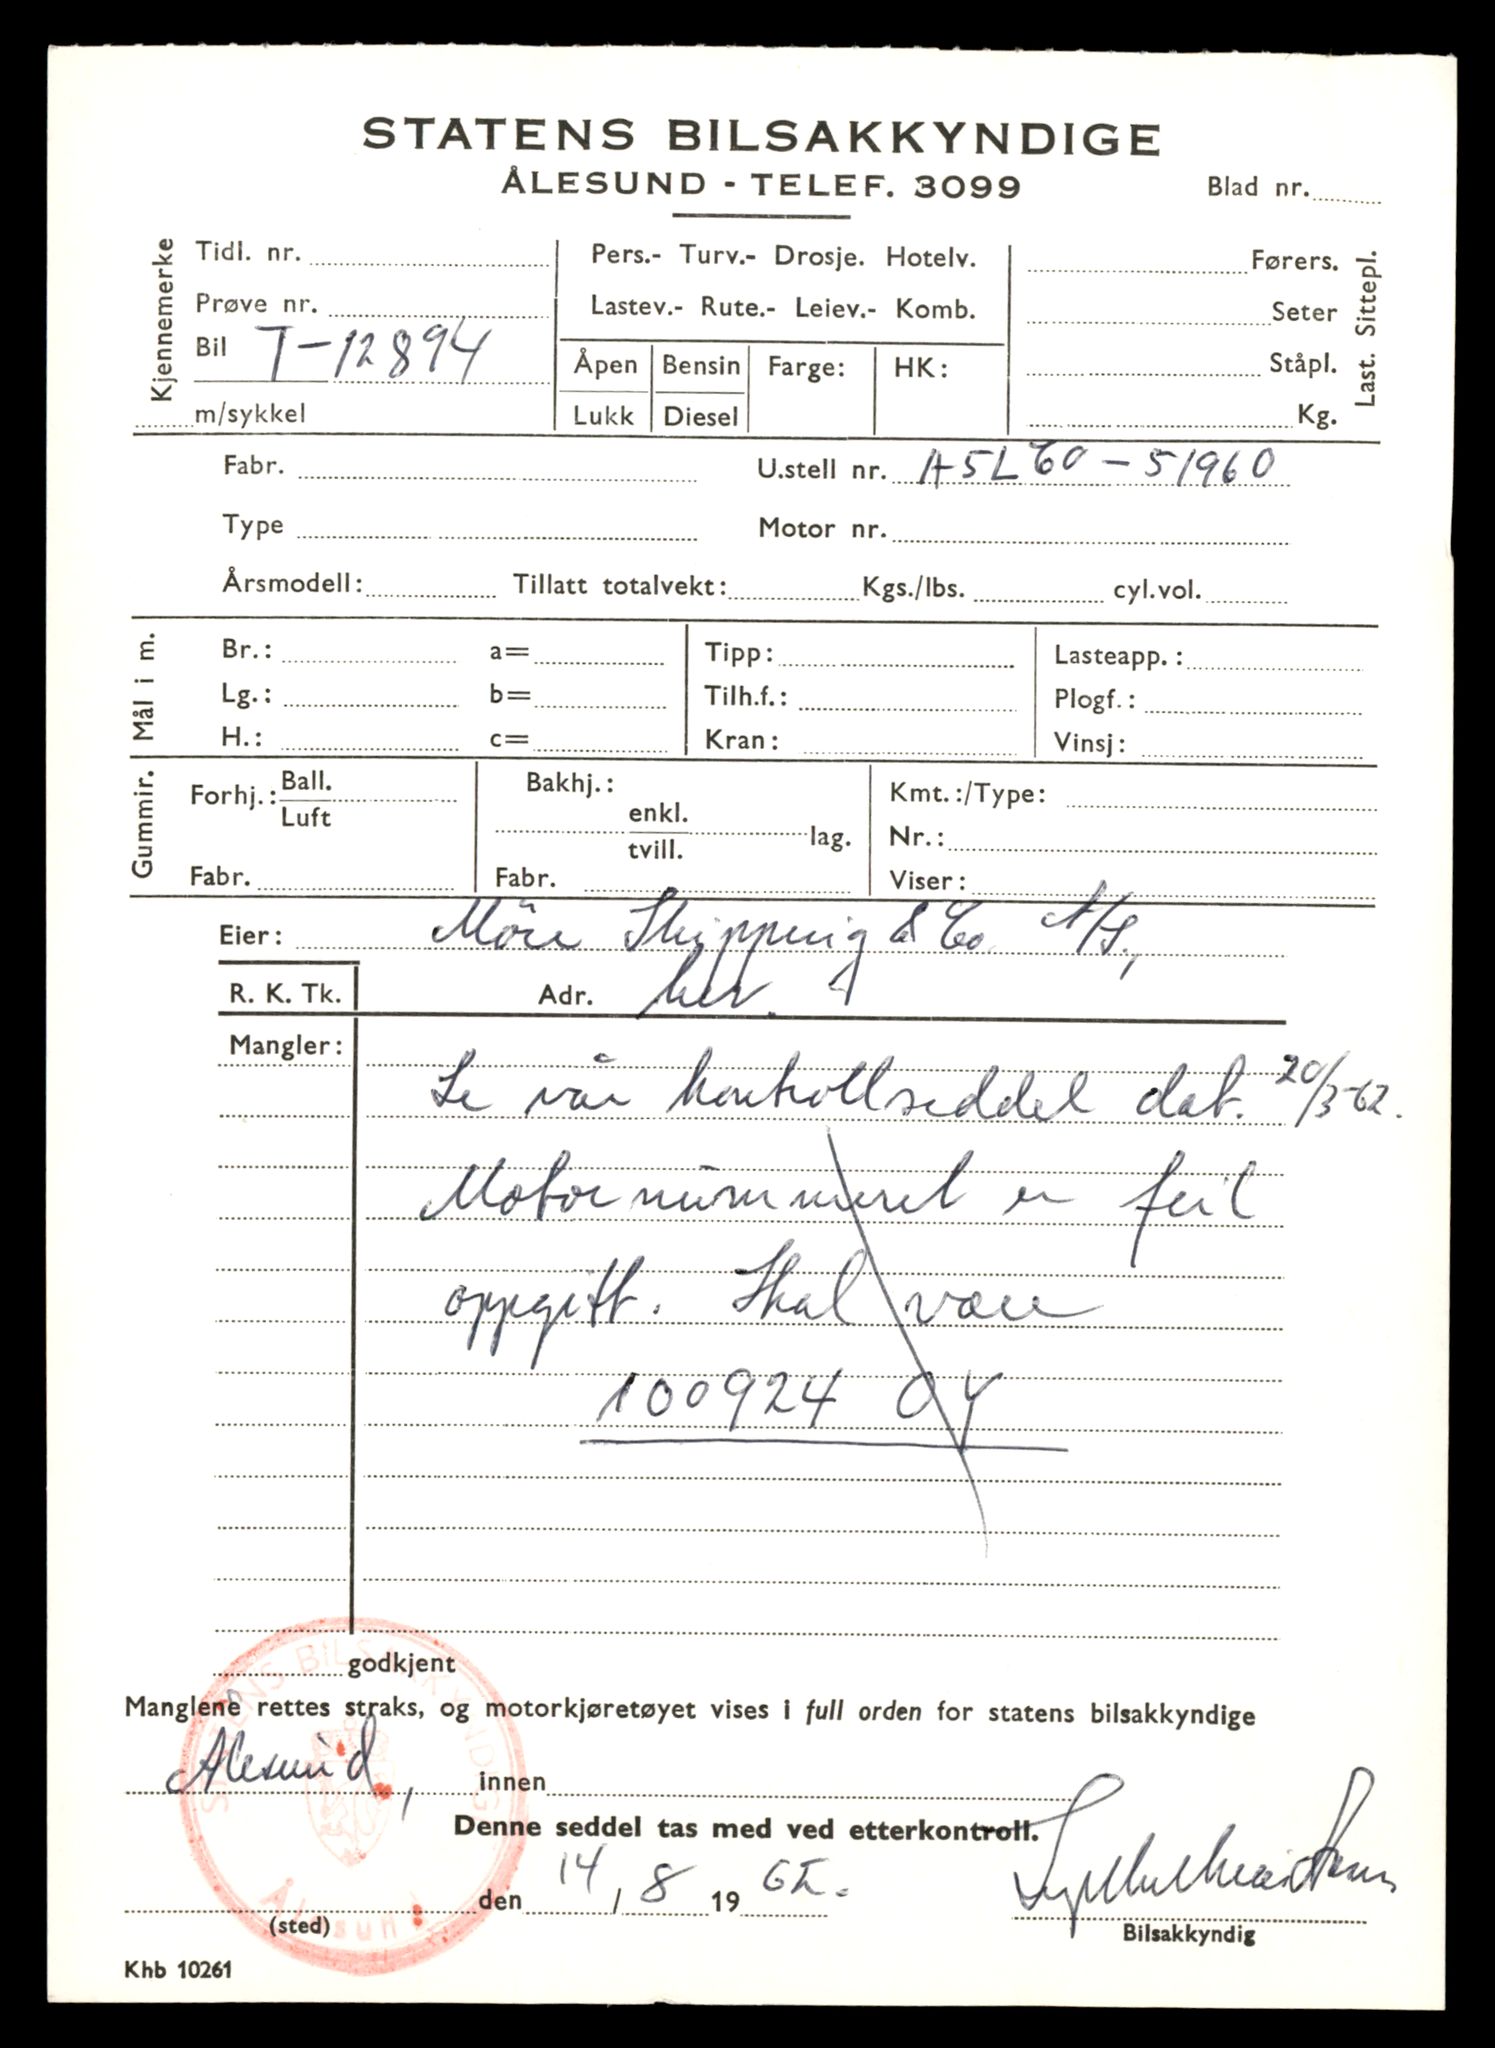 STATENS BILSAKKYNDIGE
ÅLESUND - TELEF. 3099
Blad nr.
Kjennemerke
Tidl. nr.
Prøve nr.
Bil T-12894
m/sykkel
Pers.- Turv.- Drosje. Hotelv.
Lastev.- Rute.- Leiev.- Komb.
Åpen Bensin Farge: HK:
Lukk Diesel
Førers.
Seter
Ståpl.
Kg.
Last. Sittepl.
Fabr. U.stell nr. A5L60-51960
Type Motor nr.
Årsmodell: Tillatt totalvekt: Kgs./lbs. cyl.vol.
Mål i m.
Br.: a= Tipp: Lasteapp.:
Lg.: b= Tilh.f.: Plogf.:
H.: c= Kran: Vinsj:
Gummir.
Forhj.: Ball.
Luft
Fabr.
Bakhj.:
enkl.
tvill. lag.
Fabr.
Kmt.:/Type:
Nr.:
Viser:
Eier: Möre Shipping & Co. A/S,
R. K. Tk. Adr. her.
Mangler:
Se vår kontrollseddel dat. 20/3-62.
Motornummeret er feil
oppgitt. Skal være
100924 OY
godkjent
Manglene rettes straks, og motorkjøretøyet vises i full orden for statens bilsakkyndige
Ålesund, innen
Denne seddel tas med ved etterkontroll.
den 14/8 1962.
(sted)
Bilsakkyndig
Khb 10261
STATENS BILSAKKYNDIGE
Ålesund